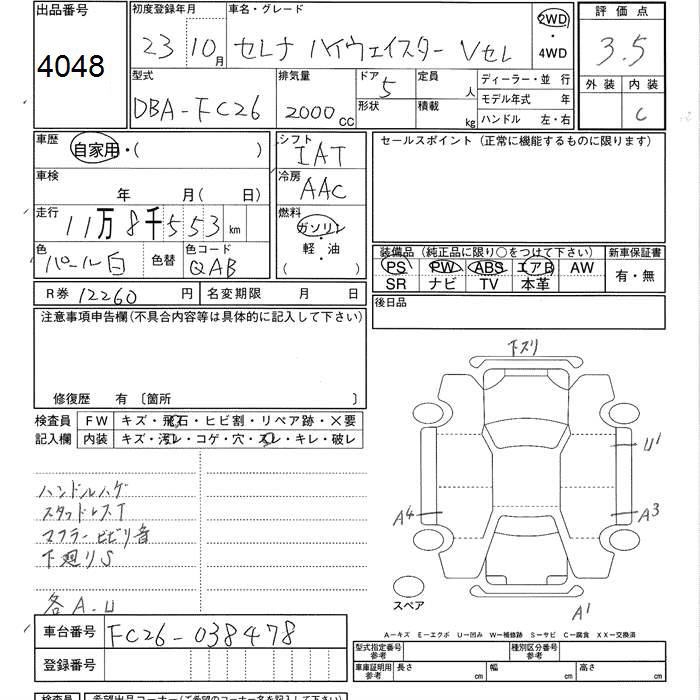 出品番号
4048
初度登録年月
23 10月
車名・グレード
セレナ ハイウェイスター Vセレ
2WD
・
4WD
評価点
3.5
外装 内装
C
型式
DBA-FC26
排気量
2000cc
ドア 5
形状
定員 人
積載 kg
ディーラー・並行
モデル年式 年
ハンドル 左・右
車歴
自家用・( )
シフト
IAT
セールスポイント(正常に機能するものに限ります)
車検
年 月(日)
冷房
AAC
走行
11万8千553km
燃料
ガソリン
・
軽・油
( )
色
パール白
色替
色コード
QAB
装備品(純正品に限り○をつけて下さい)
PS PW ABS エアB AW
SR ナビ TV 本革
新車保証書
有・無
R券 12260円
名変期限 月 日
後日品
注意事項申告欄(不具合内容等は具体的に記入して下さい)
修復歴 有〔箇所 〕
検査員
記入欄
FW キズ・飛石・ヒビ割・リペア跡・×要
内装 キズ・汚レ・コゲ・穴・スレ・キレ・破レ
ハンドルハゲ
スタッドレスT
マフラービビリ音
下廻りS
各A.U
下スリ
U1
A4
A3
A1
スペア
車台番号
FC26-038478
登録番号
A-キズ E-エクボ U-凹み W-補修跡 S-サビ C-腐食 XX-交換済
型式指定番号
参考
種別区分番号
参考
車庫証明用
参考
長さ cm 幅 cm 高さ cm
検査員
希望出品コーナー(ご希望のコーナー名を記入下さい)